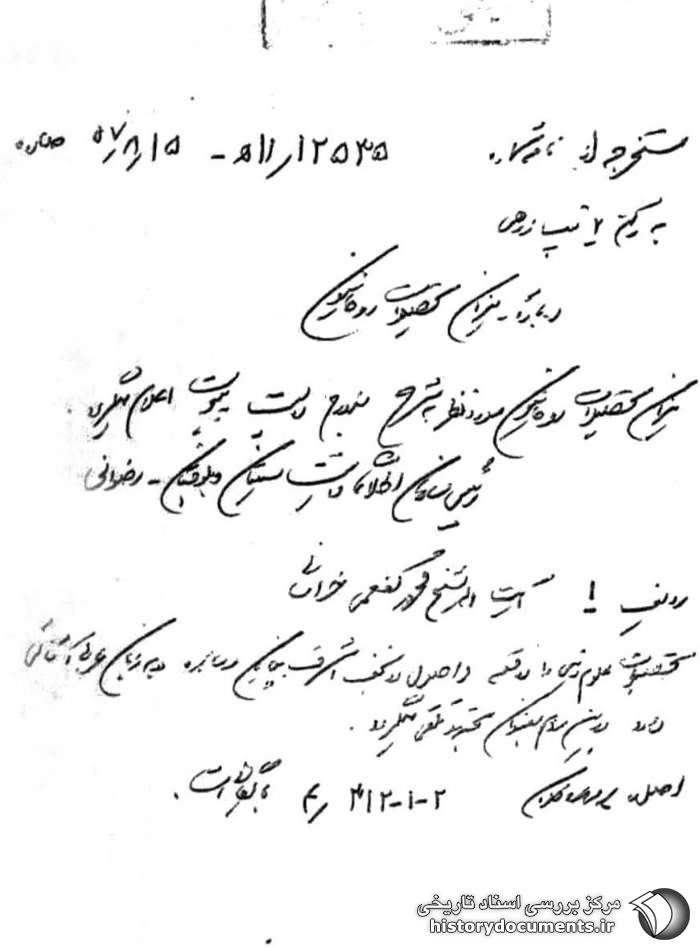 مستخرجه از نامه شماره ۱۲۵۳۵/ ۱۱ﻫ - ۵۷/۸/۱۵
به ریکم ۲ تیپ زرهی
درباره - میزان تحصیلات روحانیون
میزان تحصیلات روحانیون مورد نظر به شرح مندرج در لیست پیوست اعلام میگردد.
رئیس سازمان اطلاعات و امنیت سیستان و بلوچستان - رضوانی
ردیف ۱ آیت اله شیخ محمد کفعمی خراسانی
تحصیلات علوم دینی را در فقه و اصول در نجف اشرف بپایان رسانیده و به زبان عربی آشنائی
دارد و در بین مردم بعنوان مجتهد تلقی میگردد.
اصل در پرونده کلاسه ۲-۱-۳۱۲ بایگانی است.
مرکز بررسی اسناد تاریخی
historydocuments.ir